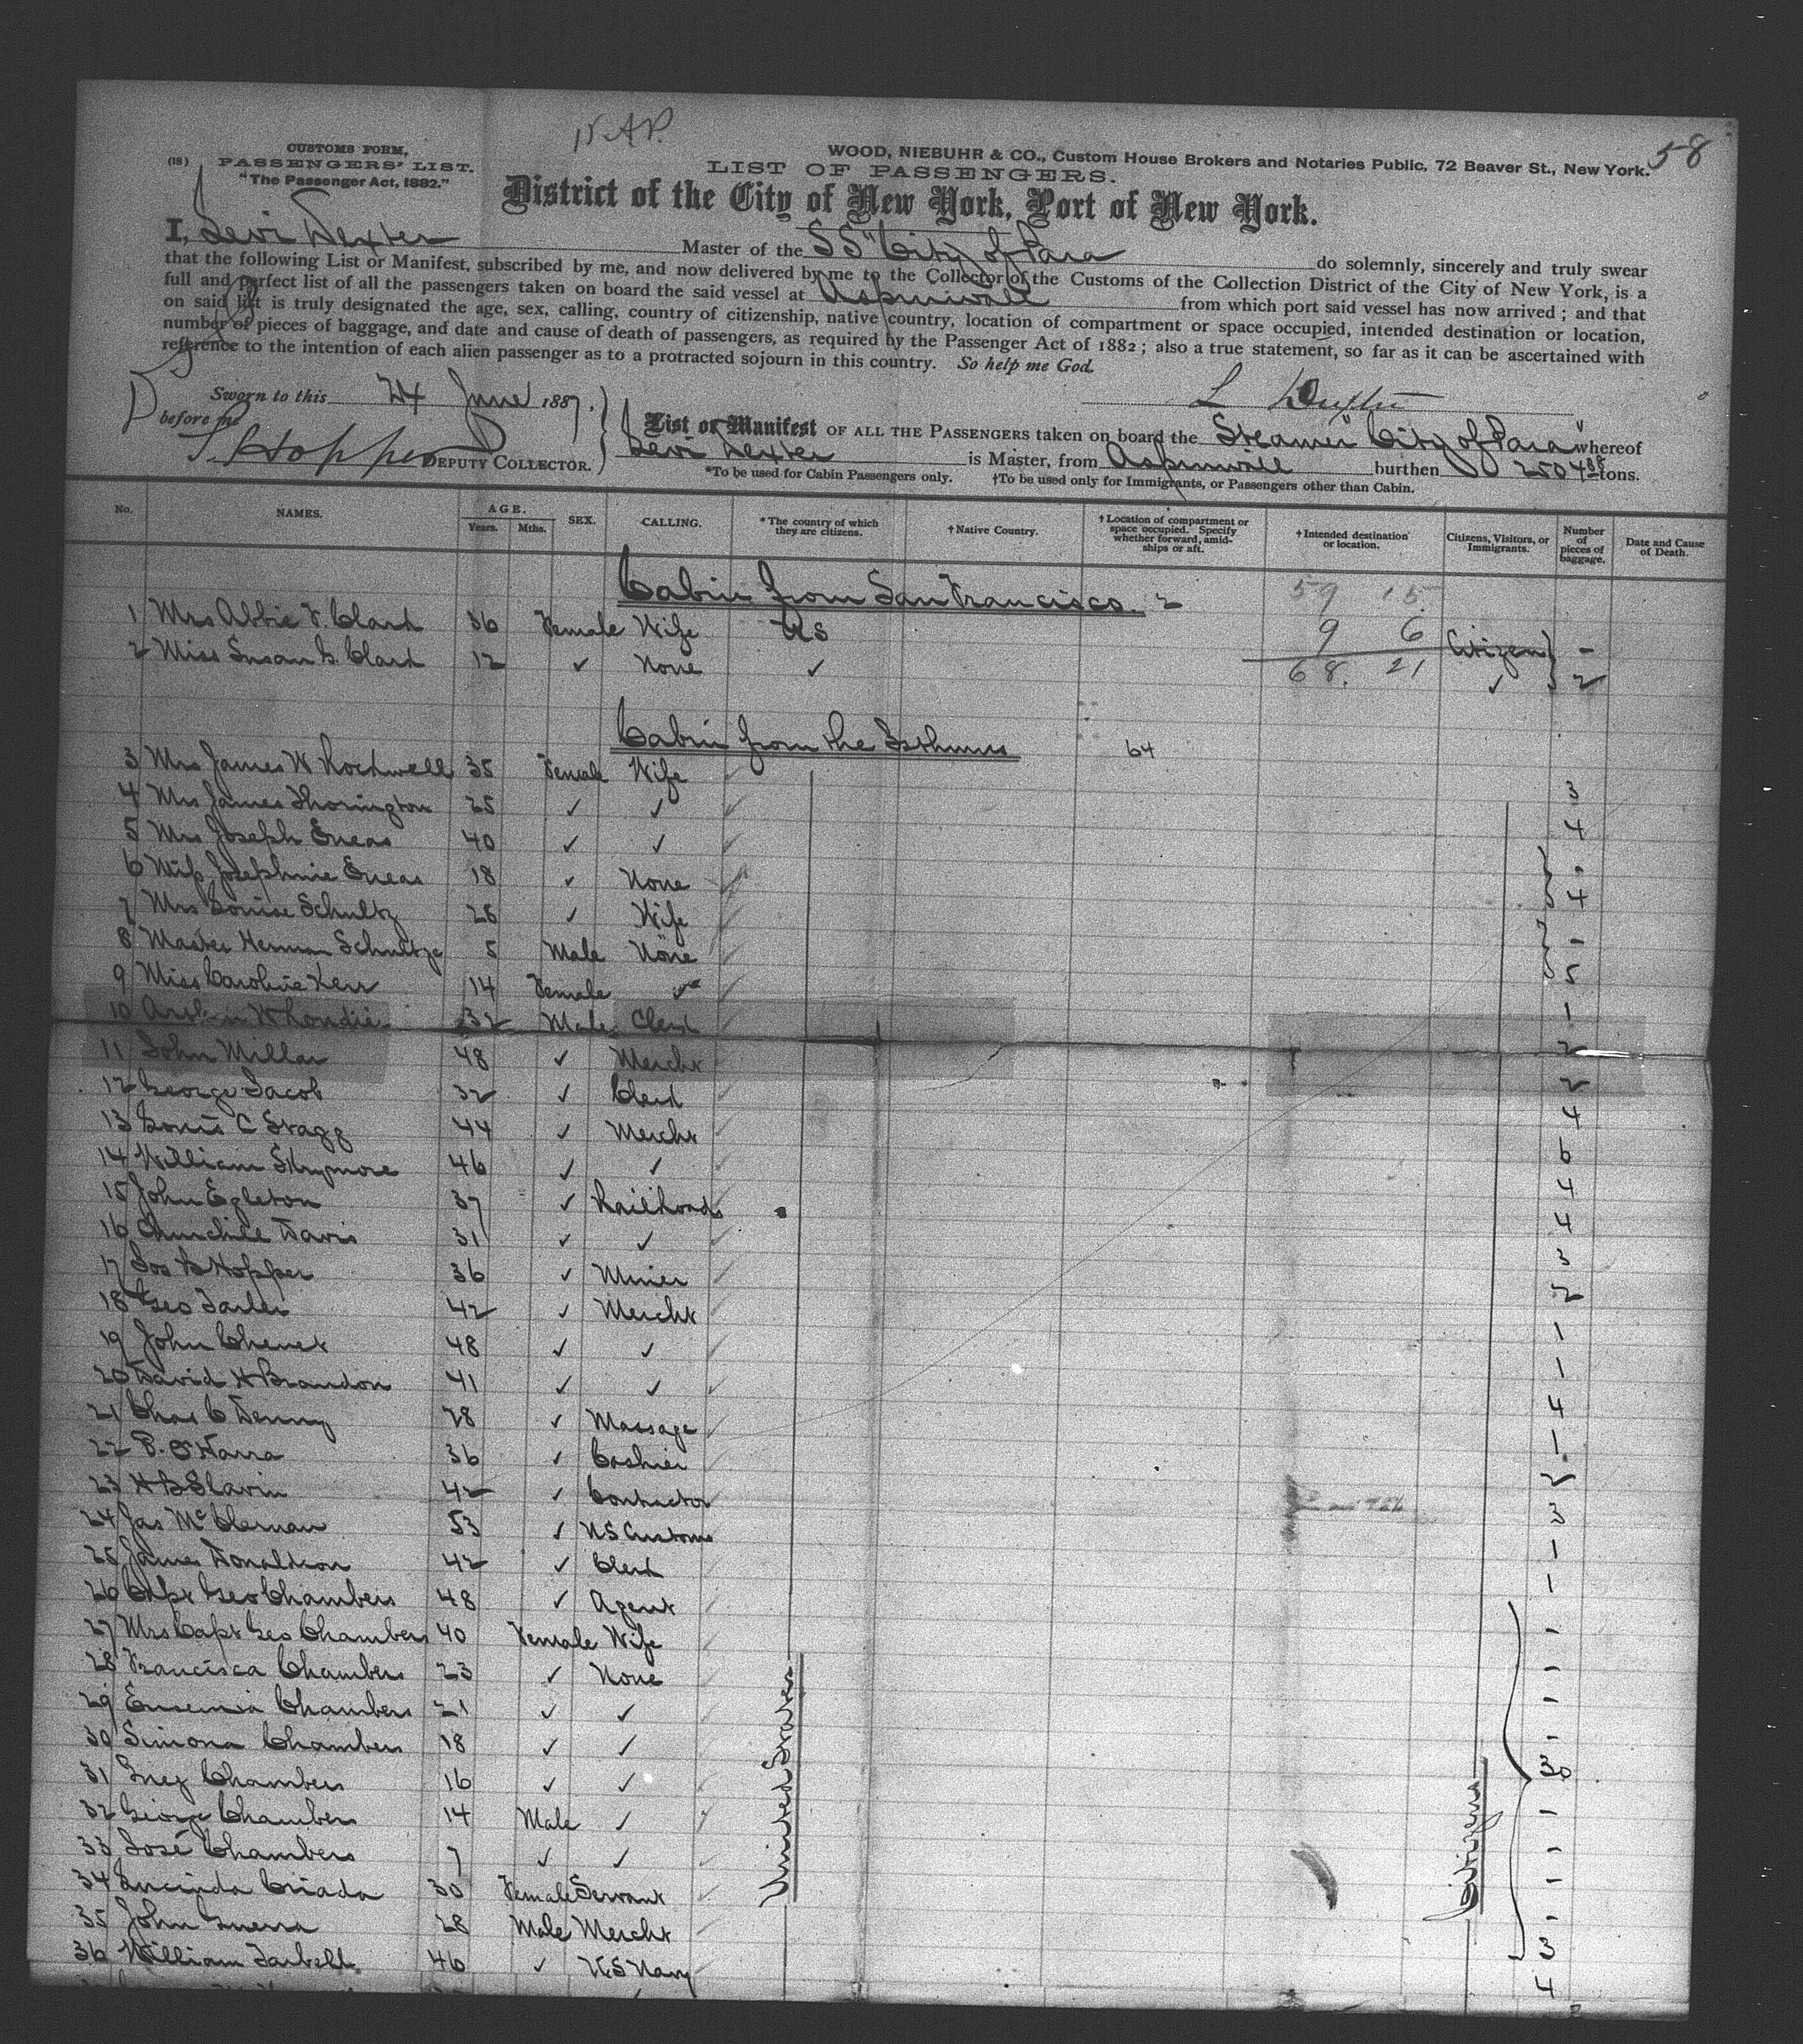 15 A.P.
58
CUSTOMS FORM,
(18) PASSENGERS' LIST.
"The Passenger Act, 1882."
WOOD, NIEBUHR & CO., Custom House Brokers and Notaries Public, 72 Beaver St., New York.
LIST OF PASSENGERS.
District of the City of New York, Port of New York.
I, Levi Dexter Master of the SS "City of Para do solemnly, sincerely and truly swear
that the following List or Manifest, subscribed by me, and now delivered by me to the Collector of the Customs of the Collection District of the City of New York, is a
full and perfect list of all the passengers taken on board the said vessel at Aspinwall from which port said vessel has now arrived; and that
on said list is truly designated the age, sex, calling, country of citizenship, native country, location of compartment or space occupied, intended destination or location,
number of pieces of baggage, and date and cause of death of passengers, as required by the Passenger Act of 1882; also a true statement, so far as it can be ascertained with
reference to the intention of each alien passenger as to a protracted sojourn in this country. So help me God.
Sworn to this 24 June 1887.
L Dexter
before me
T. Hopper DEPUTY COLLECTOR.
List or Manifest OF ALL THE PASSENGERS taken on board the Steamer "City of Para" whereof
Levi Dexter is Master, from Aspinwall burthen 2504 tons.
*To be used for Cabin Passengers only. †To be used only for Immigrants, or Passengers other than Cabin.
No. NAMES. AGE. Years. Mths. SEX. CALLING. *The country of which they are citizens. †Native Country. †Location of compartment or space occupied. Specify whether forward, amidships or aft. †Intended destination or location. Citizens, Visitors, or Immigrants. Number of pieces of baggage. Date and Cause of Death.
Cabin from San Francisco. 2
59 15
1 Mrs Abbie V. Clark 36 Female Wife US 9 6 Citizen -
2 Miss Susan G. Clark 12 ✓ None ✓ 68. 21 ✓ 2
Cabin from the Isthmus 64
3 Mrs James W Rockwell 35 Female Wife 3
4 Mrs James Thorington 25 ✓ ✓ 4
5 Mrs Joseph Eneas 40 ✓ ✓ -
6 Miss Josephine Eneas 18 ✓ None 4
7 Mrs Louise Schultz 26 ✓ Wife -
8 Master Herman Schultze 5 Male None 5
9 Miss Caroline Kerr 14 Female ✓ 1
10 32 Male Clerk 2
11 John Millar 48 ✓ Mercht 2
12 George Jacob 32 ✓ Clerk 4
13 Louis C Stagg 44 ✓ Mercht 6
14 William Skrymore 46 ✓ ✓ 4
15 John Egleton 37 ✓ Railroads 4
16 Churchill Davis 31 ✓ ✓ 3
17 Jos B Hopper 36 ✓ Miner 2
18 Geo Tarler 42 ✓ Mercht 1
19 John Chener 48 ✓ ✓ 1
20 David H Brandon 41 ✓ ✓ 4
21 Chas C Denny 28 ✓ Massage 1
22 P. O'Harra 36 ✓ Cashier 2
23 H B Slavin 42 ✓ Contractor 3
24 Jas McClernan 53 ✓ US Customs 1
25 James Donaldson 42 ✓ Clerk 1
26 Capt Geo Chambers 48 ✓ Agent -
27 Mrs Capt Geo Chambers 40 Female Wife -
28 Francisca Chambers 23 ✓ None -
29 Eusemia Chambers 21 ✓ ✓ -
30 Simona Chambers 18 ✓ ✓ 30
31 Inez Chambers 16 ✓ ✓ -
32 George Chambers 14 Male ✓ -
33 José Chambers 7 ✓ ✓ -
34 Lucinda Criada 30 Female Servant -
35 John Guerra 28 Male Mercht 3
36 William Tarbell 46 ✓ US Navy 4
United States
Citizens